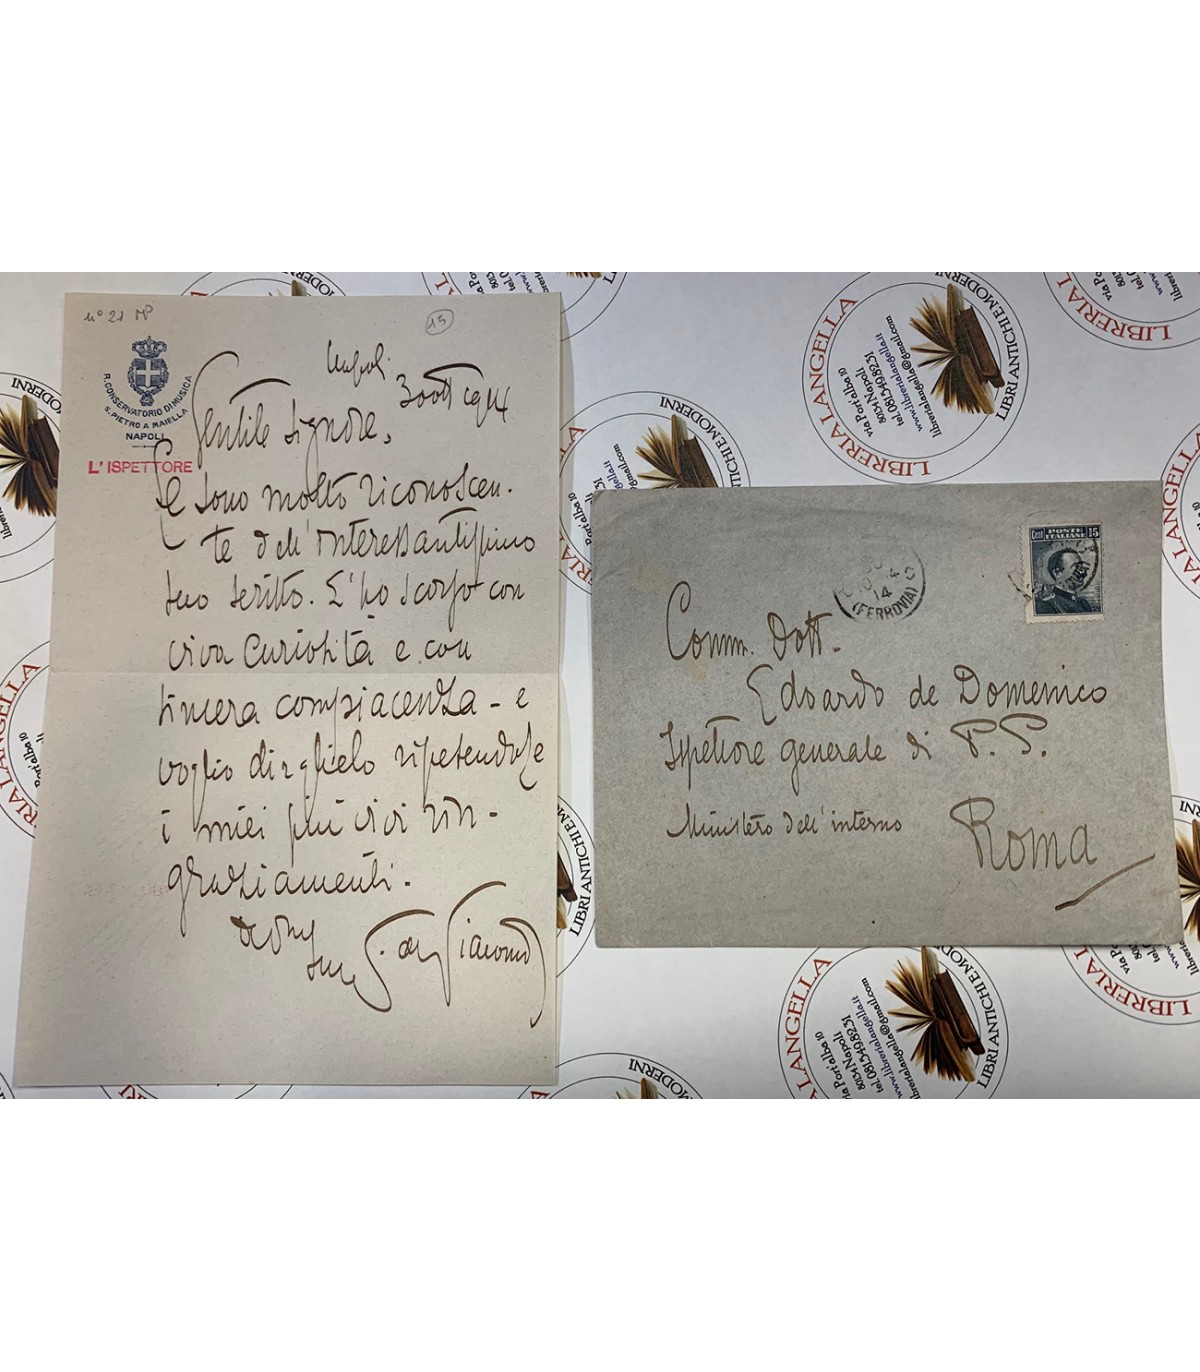 nº 21 MP
15
R. CONSERVATORIO DI MUSICA
S. PIETRO A MAIELLA
NAPOLI
L'ISPETTORE
Napoli
30 ott
Gentile Signore,
Le sono molto riconoscen-
te dell'interessantissimo
suo scritto. L'ho scorso con
viva curiosità e con
sincera compiacenza - e
voglio dirglielo ripetendole
i miei più vivi rin-
graziamenti.
suo S. di Giacomo
14
(FERROVIA)
Cent POSTE ITALIANE 15
Comm. Dott.
Edoardo de Domenico
Ispettore generale di P. S.
Ministero dell'interno
Roma
LIBRERIA LANGELLA
LIBRI ANTICHI E MODERNI
via Port'alba 10
80134 Napoli
tel. 081.549.82.31
www.librerialangella.it
librerialangella@gmail.com